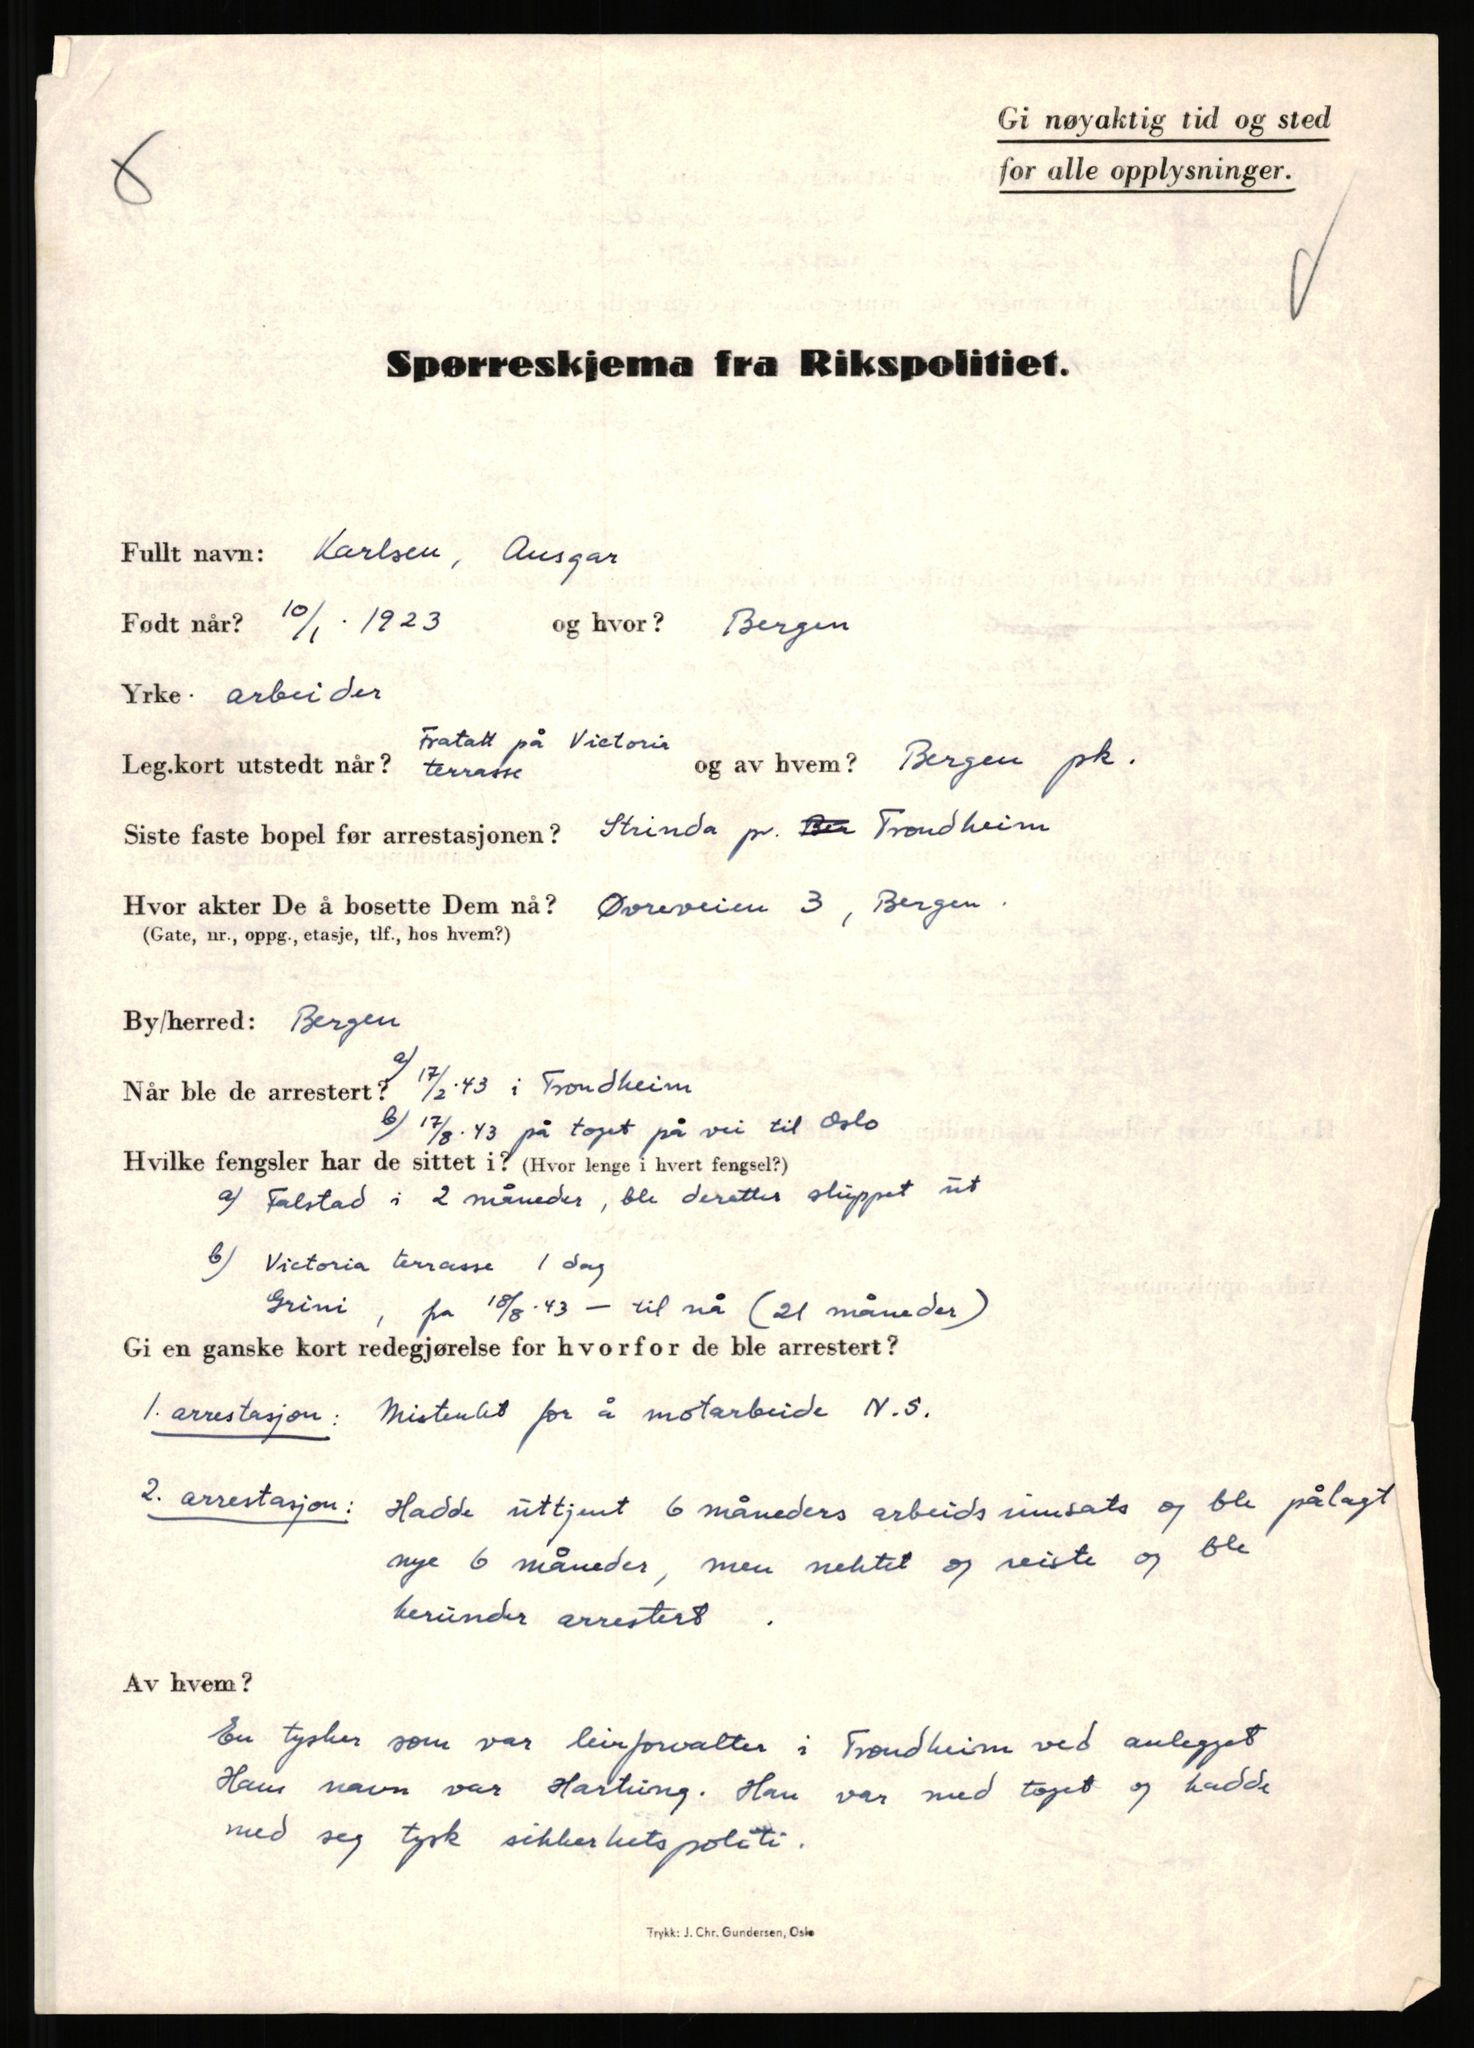 Gi nøyaktig tid og sted
for alle opplysninger.
Spørreskjema fra Rikspolitiet.
Fullt navn: Karlsen, Ansgar
Født når? 10/1. 1923 og hvor? Bergen
Yrke. arbeider
Leg.kort utstedt når? Fratatt på Victoria terrasse og av hvem? Bergen pk.
Siste faste bopel før arrestasjonen? Strinda pr. Ber Trondheim
Hvor akter De å bosette Dem nå? Øvreveien 3, Bergen.
(Gate, nr., oppg., etasje, tlf., hos hvem?)
By/herred: Bergen
Når ble de arrestert? a) 17/2.43 i Trondheim
b) 17/8.43 på toget på vei til Oslo
Hvilke fengsler har de sittet i? (Hvor lenge i hvert fengsel?)
a) Falstad i 2 måneder, ble deretter sluppet ut
b) Victoria terrasse 1 dag
Grini, fra 18/8.43 – til nå (21 måneder)
Gi en ganske kort redegjørelse for hvorfor de ble arrestert?
1. arrestasjon: Mistenkt for å motarbeide N.S.
2. arrestasjon: Hadde uttjent 6 måneders arbeidsinnsats og ble pålagt
nye 6 måneder, men nektet og reiste og ble
herunder arrestert.
Av hvem?
En tysker som var leirforvalter i Trondheim ved anlegget
Hans navn var Hartung. Han var med toget og hadde
med seg tysk sikkerhetspoliti.
Trykk: J. Chr. Gundersen, Oslo